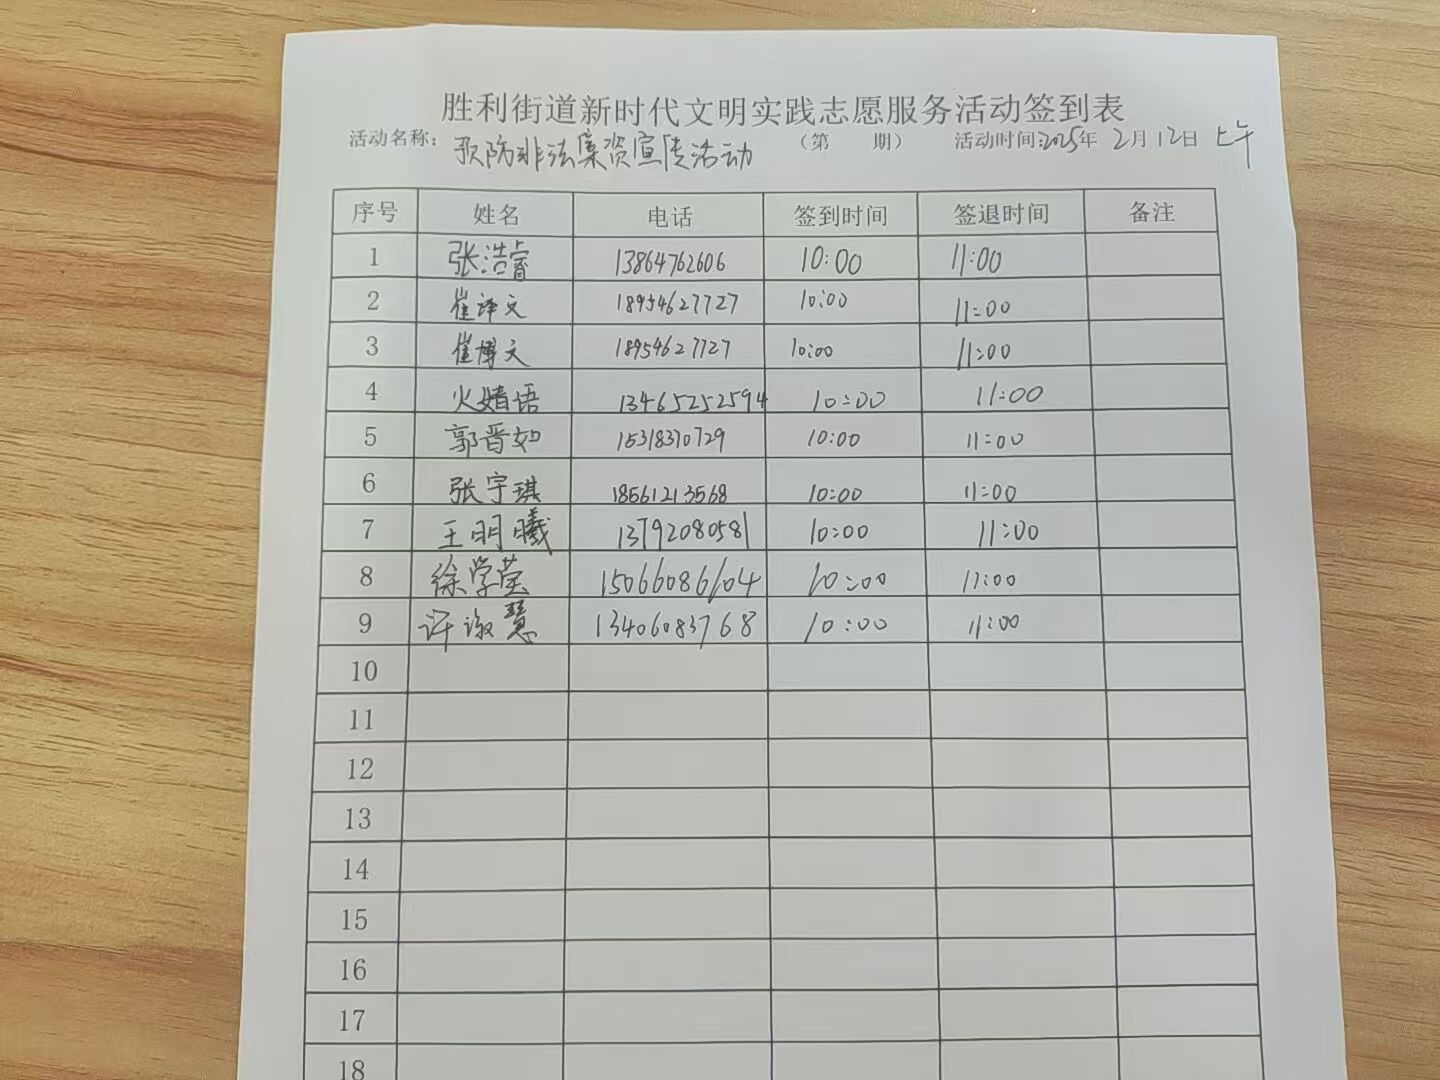 胜利街道新时代文明实践志愿服务活动签到表
活动名称：预防非法集资宣传活动 （第 期） 活动时间：2025年 2月12日 上午
序号 姓名 电话 签到时间 签退时间 备注
1 张浩睿 13864762606 10:00 11:00
2 崔译文 18954627727 10:00 11:00
3 崔博文 18954627727 10:00 11:00
4 火婧语 13465252594 10:00 11:00
5 郭晋如 15318370729 10:00 11:00
6 张宇琪 18561213568 10:00 11:00
7 王明曦 13792080581 10:00 11:00
8 徐学莹 15066086104 10:00 11:00
9 许溦慧 13406083768 10:00 11:00
10
11
12
13
14
15
16
17
18